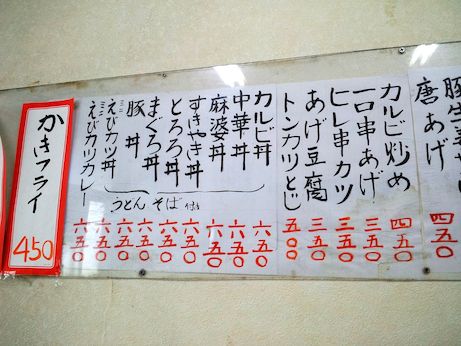 豚生姜
唐あげ
四五〇
カルビ炒め
四五〇
一口串あげ
三五〇
ヒレ串カツ
三五〇
あげ豆腐
三五〇
トンカツとじ
五〇〇
カルビ丼
六五〇
中華丼
六五〇
麻婆丼
六五〇
すきやき丼
六五〇
とろろ丼
六五〇
まぐろ丼
六五〇
豚丼
六五〇
ミニえびカツ丼
六五〇
ミニえびカツカレー
六五〇
うどんそば付き
かきフライ
450